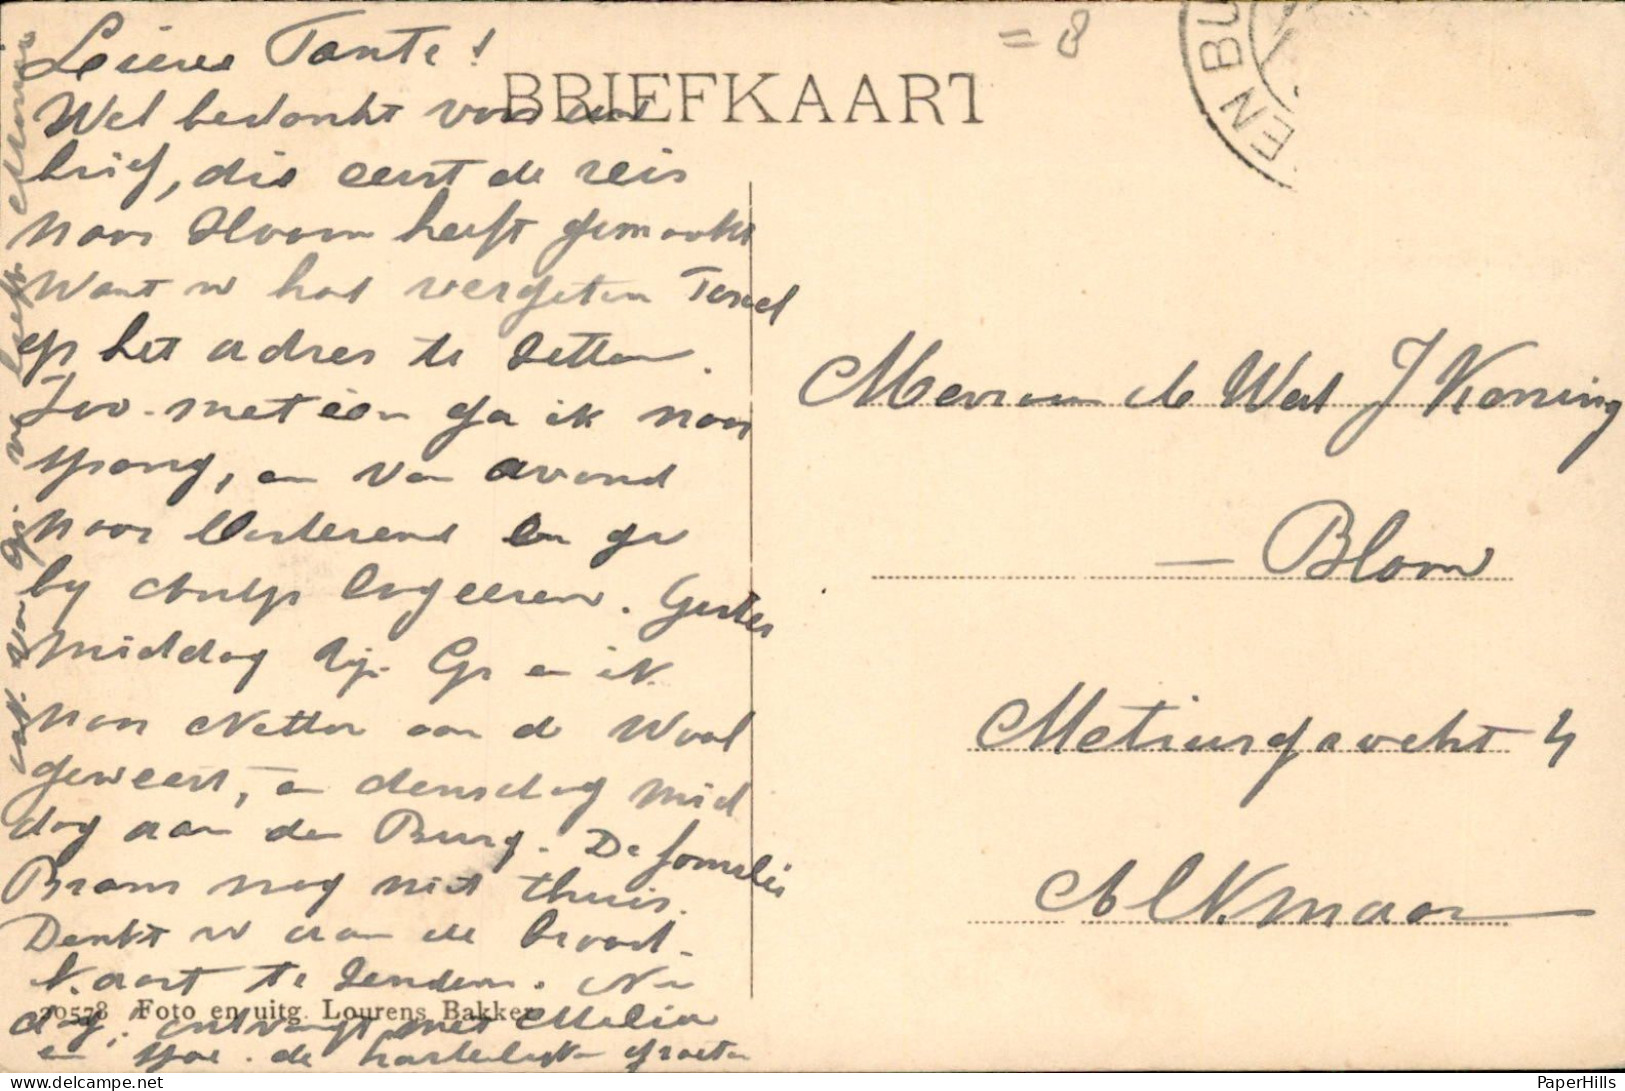 Lieve Tante!
BRIEFKAART
= 8
EN BU
Wel bedankt voor uw
brief, die eerst de reis
naar Hoorn heeft gemaakt
Want u had vergeten Texel
op het adres te zetten.
Zoo. meteen ga ik naar
Spang, en van avond
naar Oosterend en ga
by logeeren. Gister
middag zijn en ik
naar Netten aan de Waal
geweest, en densdag mid
dag aan den Burg. De familie
Bram nog niet thuis.
Denkt u aan de brood
kaart te zenden. Nu
dag, ontvangt met
en de hartelijke groeten
van
Mevrouw de Wed J Koning
— Blom
Metiusgracht 4
Alkmaar
20578 Foto en uitg. Lourens Bakker
PaperHills